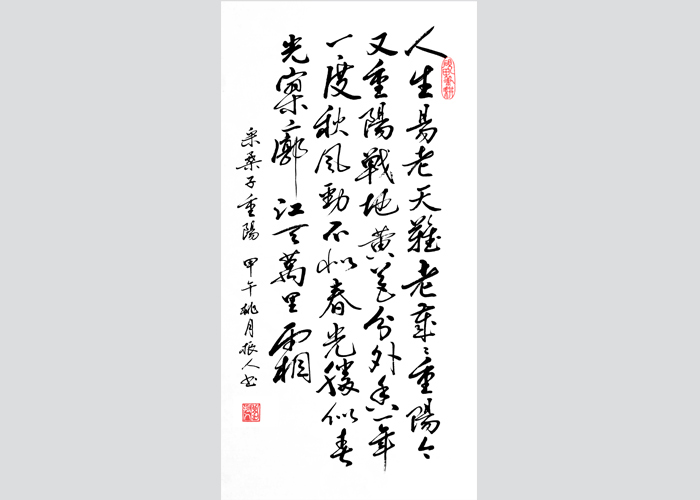 人生易老天難老歲〻重陽今
又重陽戰地黃花分外香一年
一度秋風勁不似春光勝似春
光寥廓江天萬里霜
采桑子重陽 甲午桃月振人書